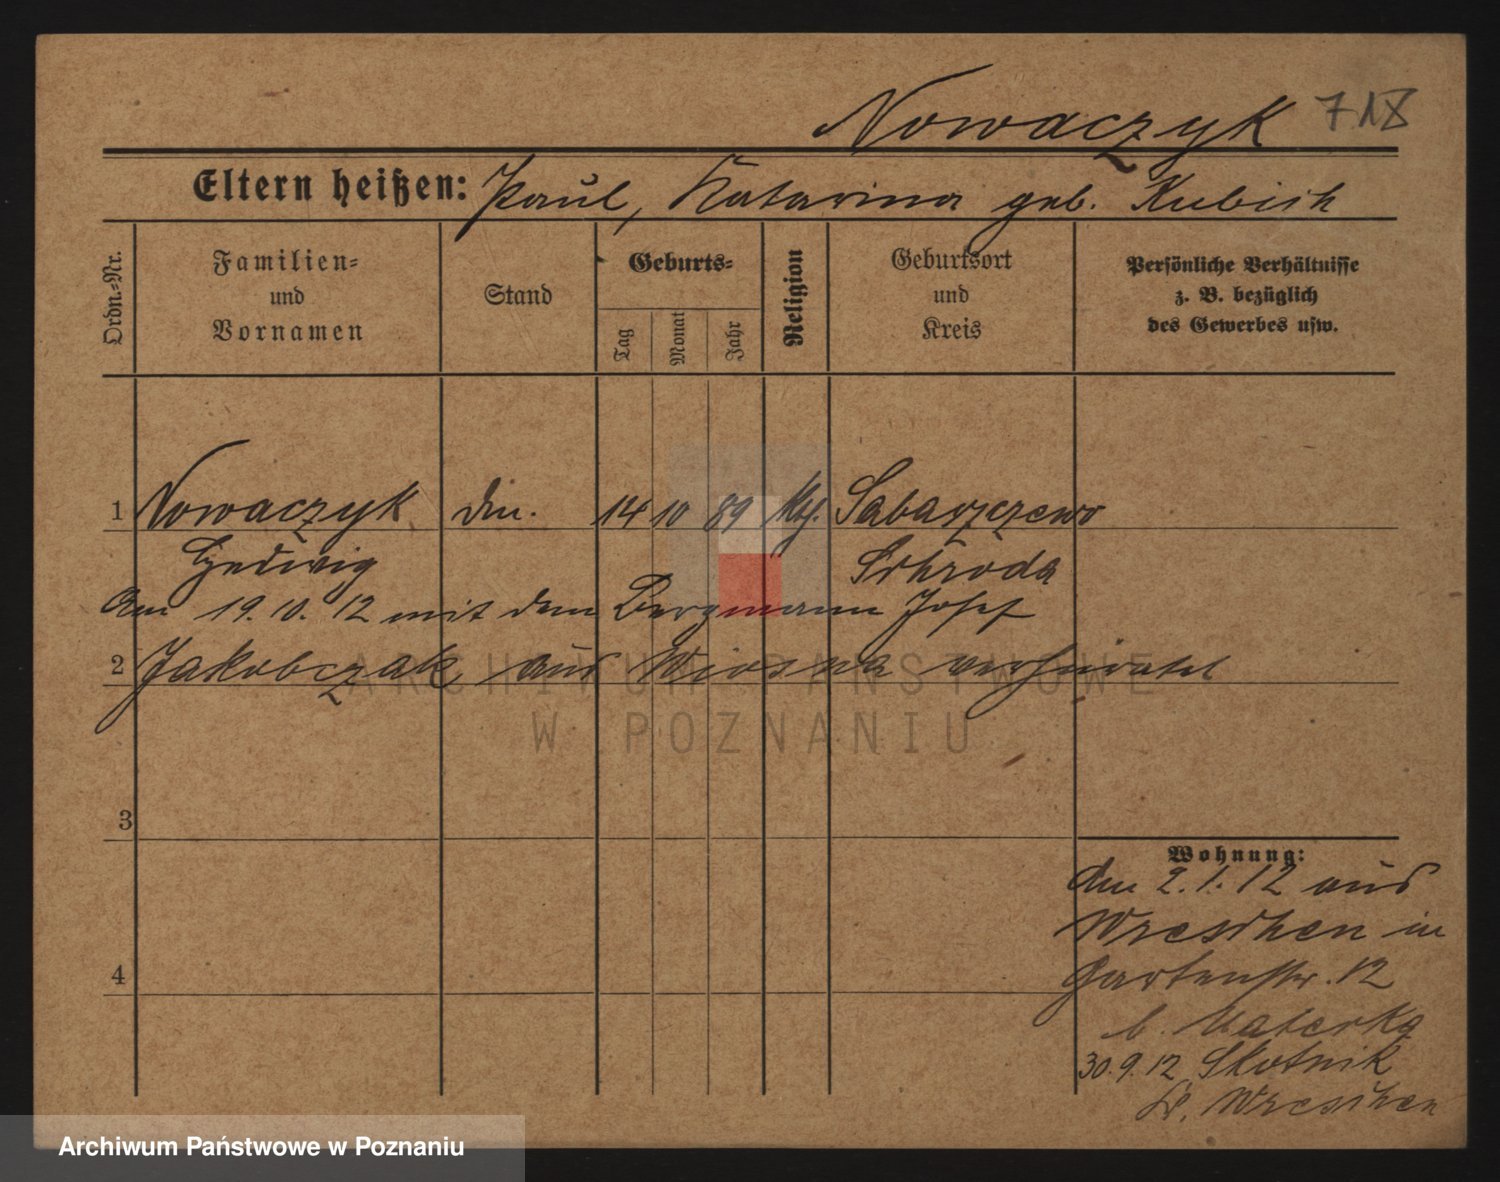 Nowaczyk 718
Eltern heißen: Paul, Katarina geb. Kubish
Ordn.-Nr.
Familien-
und
Vornamen
Stand
Geburts-
Tag
Monat
Jahr
Religion
Geburtsort
und
Kreis
Persönliche Verhältnisse
z. B. bezüglich
des Gewerbes usw.
1 Nowaczyk din. 14 10 89 Sabaszczewo
Hedwig Schroda
Am 19.10.12 mit dem Bergmann Josef
2 Jakobczak aus verheiratet
ARCHIWUM PAŃSTWOWE
W POZNANIU
3
4
Wohnung:
den 2.1.12 aus
Wreschen in
Gartenstr. 12
b. Materka
30.9.12 Skotnik
Kr. Wreschen
Archiwum Państwowe w Poznaniu